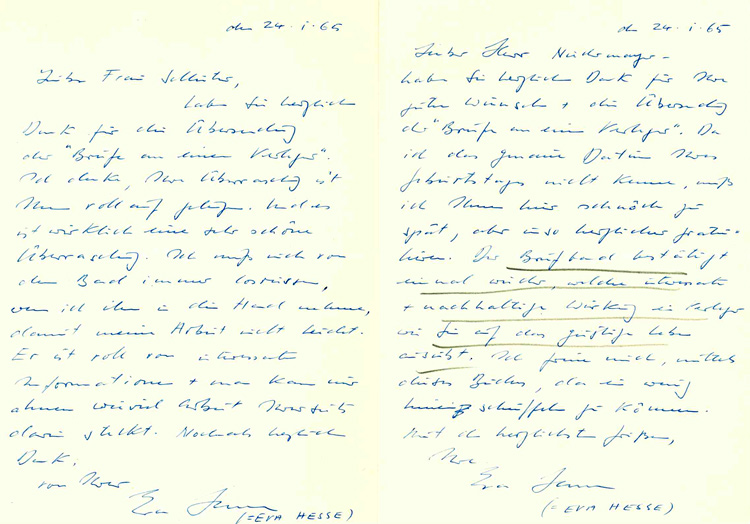 den 24.1.65
Liebe Frau Schlüter,
haben Sie herzlich
Dank für die Übersendung
der "Briefe an einen Verleger".
Ich denke, Ihre Überraschung ist
Ihnen voll auf gelungen. Und es
ist wirklich eine sehr schöne
Überraschung. Ich muß mich von
dem Band immer losreissen,
wenn ich ihn in die Hand nehme,
damit meine Arbeit nicht leidet.
Er ist voll von interessanten
Informationen + man kann nur
ahnen wieviel Arbeit Ihrerseits
darin steckt. Nochmals herzlich
Dank,
von Ihrer
Eva
(=EVA HESSE)
den 24.1.65
Lieber Herr Niedermayer -
haben Sie herzlich Dank für Ihre
guten Wünsche + die Übersendung
der "Briefe an einen Verleger". Da
ich das genaue Datum Ihres
Geburtstages nicht kenne, muß
ich Ihnen hier schnöde zu
spät, aber umso herzlicher gratu-
lieren. Der Briefband bestätigt
einmal wieder, welche interessante
+ nachhaltige Wirkung ein Verleger
wie Sie auf das geistige Leben
ausübt. Ich freue mich, mittels
dieses Buches, da ein wenig
hineinzuschnüffeln zu können.
Mit den herzlichsten Grüßen,
Ihre
Eva
(=EVA HESSE)